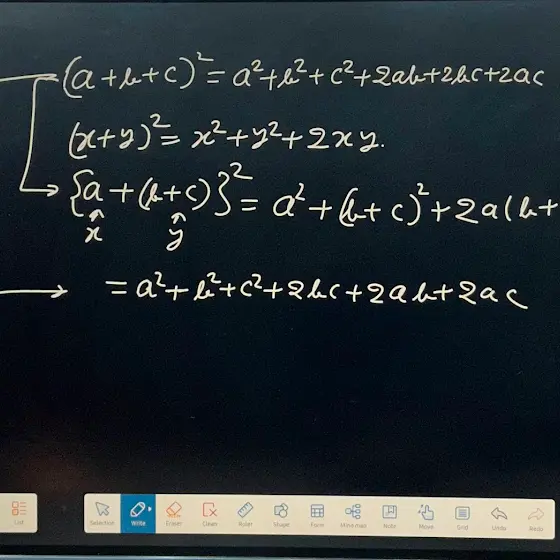 (a+b+c)² = a²+b²+c²+2ab+2bc+2ac
(x+y)² = x²+y²+2xy.
{a+(b+c)}² = a²+(b+c)²+2a(b+
x y
= a²+b²+c²+2bc+2ab+2ac
List Selection Write Eraser Clean Ruler Shape Form Mind map Note More Grid Undo Redo